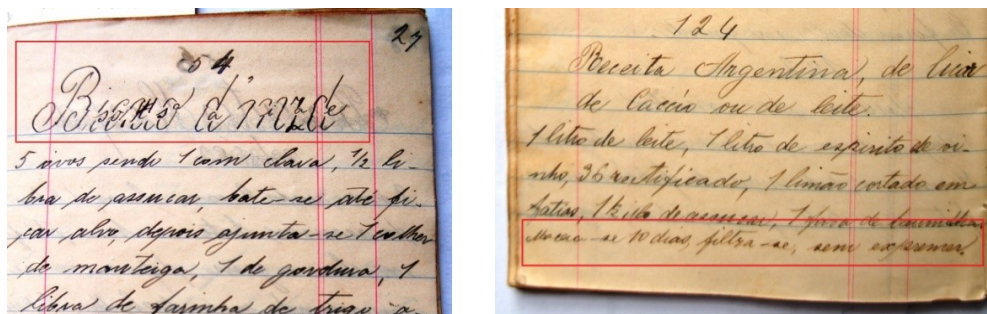 27
54
Biscouto d'
5 ovos sendo 1 com clara, 1/2 li-
bra de assucar, bate-se até fi-
car alvo, depois ajunta-se 1 colher
de manteiga, 1 de gordura, 1
libra de farinha de trigo a-
124
Receita Argentina, de licor
de Caccáo ou de leite.
1 litro de leite, 1 litro de espirito de vi-
nho, 36 rectificado, 1 limão cortado em
fatias, 1 kilo de assucar, 1 fava de baunilha
Macera-se 10 dias, filtra-se, sem expremer.